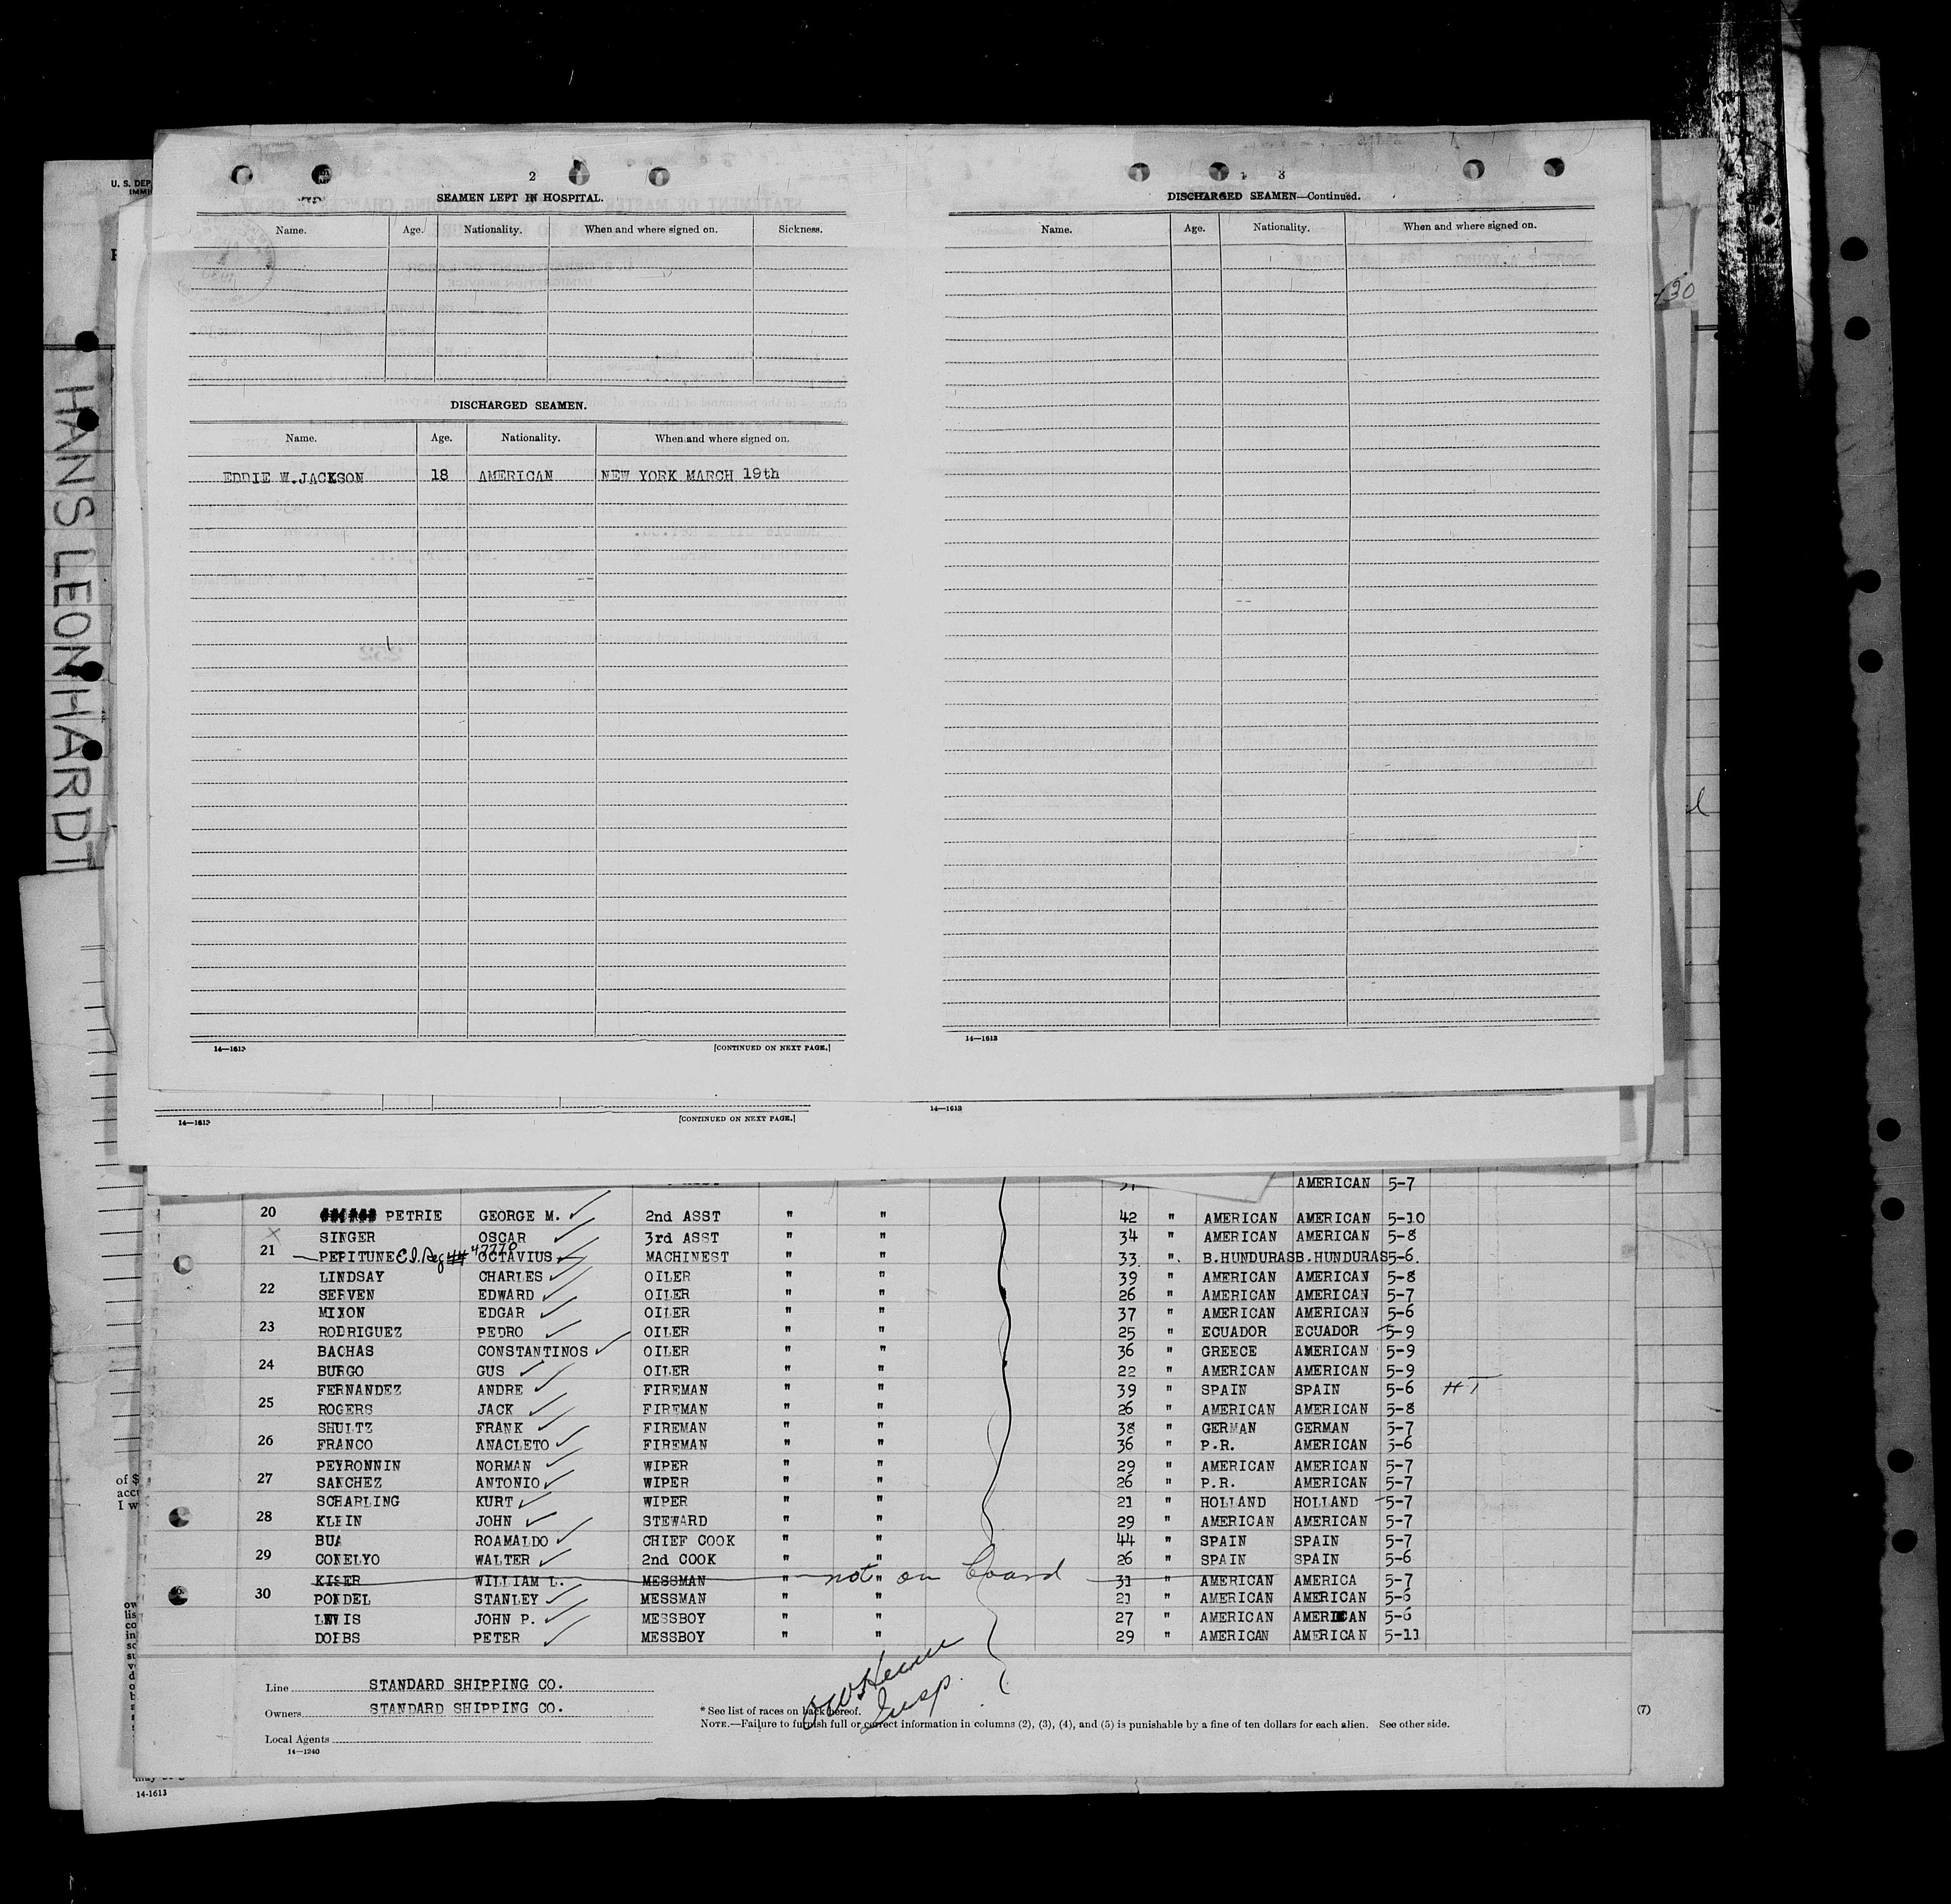 U. S. DEP
IMMI
2
SEAMEN LEFT IN HOSPITAL.
Name. Age. Nationality. When and where signed on. Sickness.
DISCHARGED SEAMEN.
Name. Age. Nationality. When and where signed on.
EDDIE W.JACKSON 18 AMERICAN NEW YORK MARCH 19th
14—1613 [CONTINUED ON NEXT PAGE.]
3
DISCHARGED SEAMEN—Continued.
Name. Age. Nationality. When and where signed on.
14—1613
HANS LEONHARDT
30
14—1613 [CONTINUED ON NEXT PAGE.] 14—1613
AMERICAN 5-7
20 PETRIE GEORGE M. 2nd ASST " " 42 " AMERICAN AMERICAN 5-10
SINGER OSCAR 3rd ASST " " 34 " AMERICAN AMERICAN 5-8
21 PEPITUNE C.I. Reg # 47770 OCTAVIUS MACHINEST " " 33 " B.HUNDURAS B.HUNDURAS 5-6.
LINDSAY CHARLES OILER " " 39 " AMERICAN AMERICAN 5-8
22 SERVEN EDWARD OILER " " 26 " AMERICAN AMERICAN 5-7
MIXON EDGAR OILER " " 37 " AMERICAN AMERICAN 5-6
23 RODRIGUEZ PEDRO OILER " " 25 " ECUADOR ECUADOR 5-9
BACHAS CONSTANTINOS OILER " " 36 " GREECE AMERICAN 5-9
24 BURGO GUS OILER " " 22 " AMERICAN AMERICAN 5-9
FERNANDEZ ANDRE FIREMAN " " 39 " SPAIN SPAIN 5-6 HT
25 ROGERS JACK FIREMAN " " 26 " AMERICAN AMERICAN 5-8
SHULTZ FRANK FIREMAN " " 38 " GERMAN GERMAN 5-7
26 FRANCO ANACLETO FIREMAN " " 36 " P.R. AMERICAN 5-6
PEYRONNIN NORMAN WIPER " " 29 " AMERICAN AMERICAN 5-7
27 SANCHEZ ANTONIO WIPER " " 26 " P.R. AMERICAN 5-7
SCHARLING KURT WIPER " " 21 " HOLLAND HOLLAND 5-7
28 KLEIN JOHN STEWARD " " 29 " AMERICAN AMERICAN 5-7
BUA ROAMALDO CHIEF COOK " " 44 " SPAIN SPAIN 5-7
29 CONELYO WALTER 2nd COOK " " 26 " SPAIN SPAIN 5-6
KISER WILLIAM L. MESSMAN " " not on board 31 " AMERICAN AMERICA 5-7
30 PONDEL STANLEY MESSMAN " " 21 " AMERICAN AMERICAN 5-6
LEWIS JOHN P. MESSBOY " " 27 " AMERICAN AMERICAN 5-6
DOIBS PETER MESSBOY " " 29 " AMERICAN AMERICAN 5-11
Line STANDARD SHIPPING CO.
Owners STANDARD SHIPPING CO.
Local Agents
14—1240
Insp.
* See list of races on back hereof.
NOTE.—Failure to furnish full or correct information in columns (2), (3), (4), and (5) is punishable by a fine of ten dollars for each alien. See other side.
(7)
of $
acc
I w
14-1613